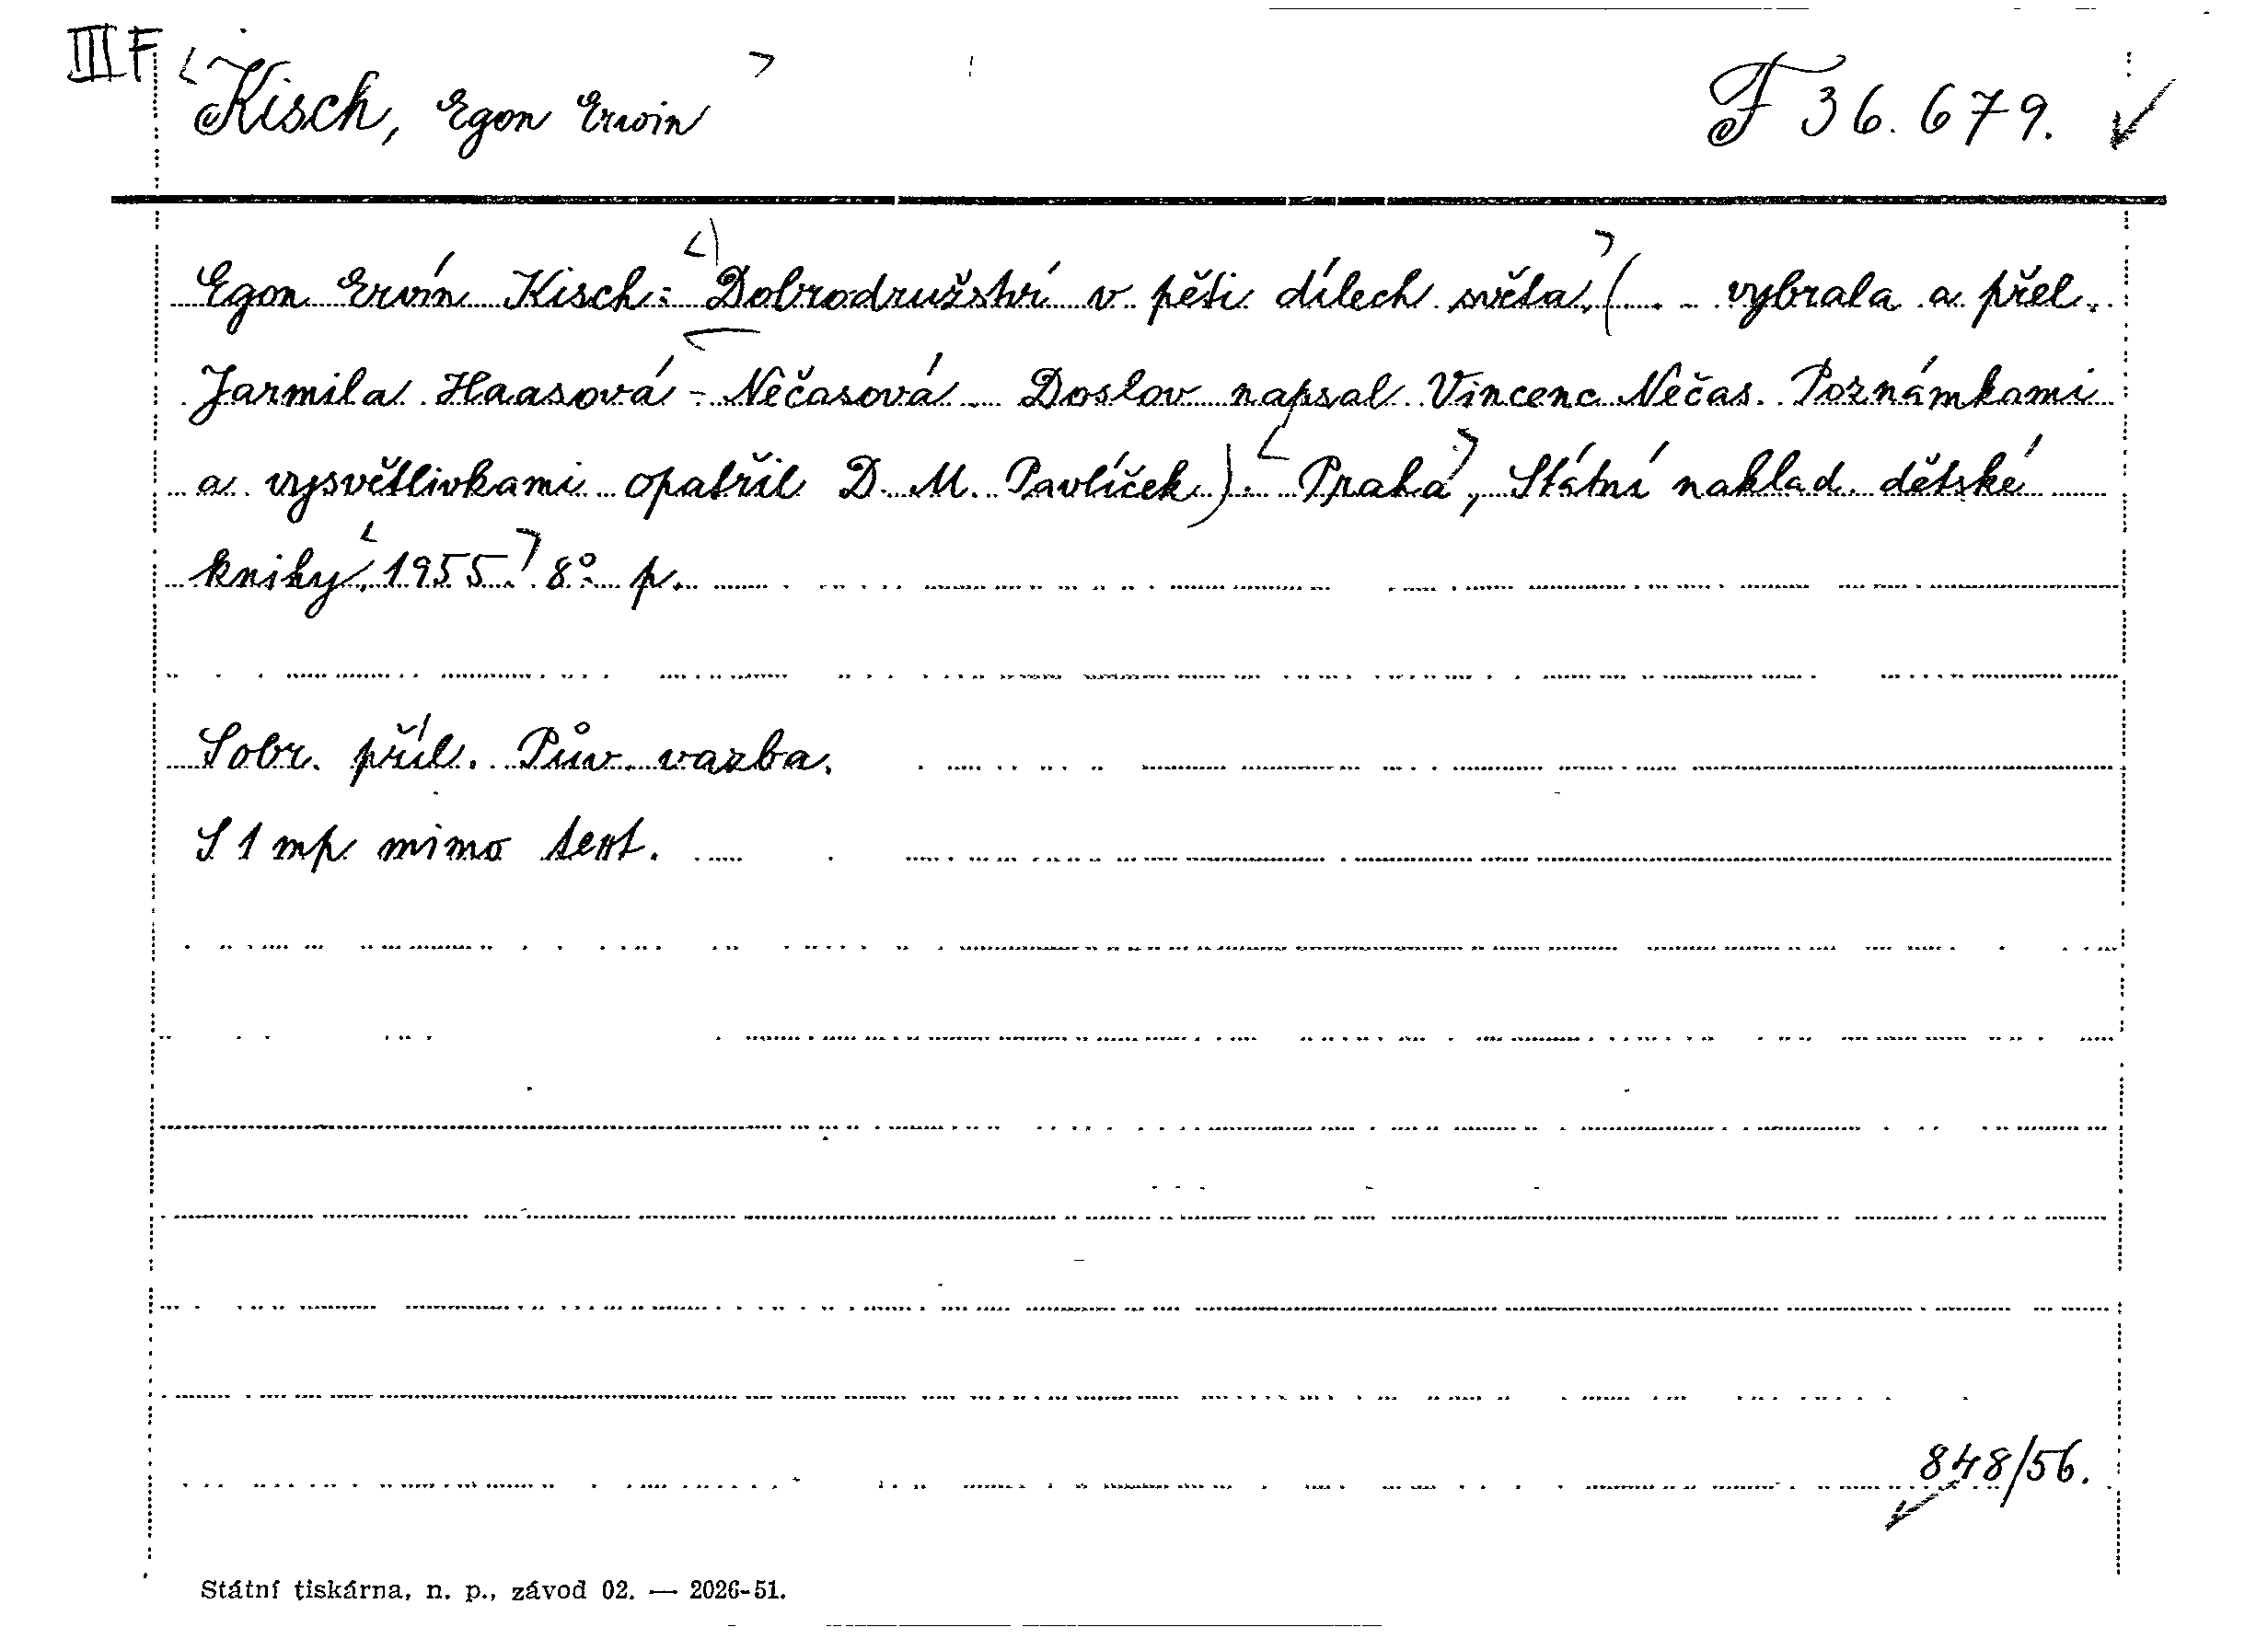 III F
Kisch, Egon Erwin
F 36.679.
Egon Ervín Kisch: Dobrodružství v pěti dílech světa. (. - vybrala a přel.
Jarmila Haasová - Nečasová. Doslov napsal Vincenc Nečas. Poznámkami
a vysvětlivkami opatřil D. M. Pavlíček). Praha, Státní naklad. dětské
knihy, 1955. 8° p.
S obr. příl. Pův. vazba.
S 1 mp mimo text.
848/56.
Státní tiskárna, n. p., závod 02. — 2026-51.